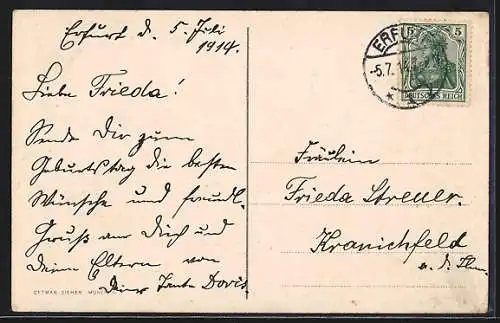 Erfurt d. 5. Juli
1914.
Liebe Frieda!
Sende Dir zum
Geburtstag die besten
Wünsche und freundl.
Gruß an Dich und
deine Eltern von
Deiner Tante Doris.
OTTMAR ZIEHER
ERFU
-5.7.14
5
DEUTSCHES REICH
Fräulein
Frieda Streuer.
Kranichfeld
a. d. Ilm.